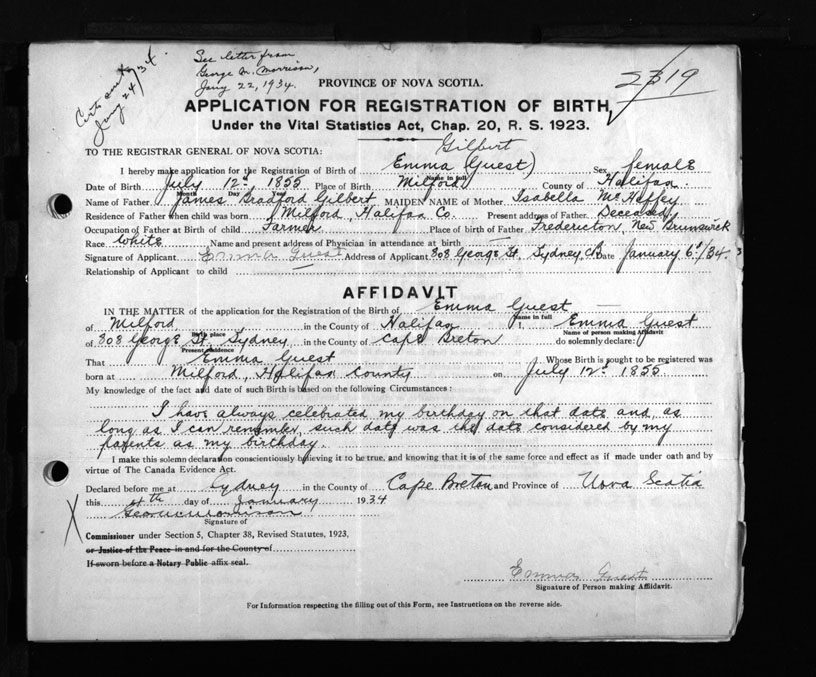 See letter from
George M. Morrison,
Jany 22, 1934.
Jany 24/34
2319
PROVINCE OF NOVA SCOTIA.
APPLICATION FOR REGISTRATION OF BIRTH,
Under the Vital Statistics Act, Chap. 20, R. S. 1923.
TO THE REGISTRAR GENERAL OF NOVA SCOTIA:
Gilbert
I hereby make application for the Registration of Birth of Emma (Guest) Sex female
Name in full
Date of Birth July 12th, 1855 Place of Birth Milford County of Halifax.
Month Day Year
Name of Father James Bradford Gilbert MAIDEN NAME of Mother Isabella McHeffey
Residence of Father when child was born Milford, Halifax Co. Present address of Father Deceased
Occupation of Father at Birth of child Farmer Place of birth of Father Fredericton, New Brunswick
Race White Name and present address of Physician in attendance at birth —
Signature of Applicant Emma Guest Address of Applicant 308 George St. Sydney, C.B. Date January 6th/34.
Relationship of Applicant to child —
AFFIDAVIT
IN THE MATTER of the application for the Registration of the Birth of Emma Guest
Name in full
of Milford in the County of Halifax I, Emma Guest
Birth place Name of person making Affidavit
of 308 George St. Sydney in the County of Cape Breton do solemnly declare:
Present residence
That Emma Guest Whose Birth is sought to be registered was
born at Milford, Halifax County on July 12th 1855
My knowledge of the fact and date of such Birth is based on the following Circumstances:
I have always celebrated my birthday on that date and, as
long as I can remember, such date was the date considered by my
parents as my birthday.
I make this solemn declaration conscientiously believing it to be true, and knowing that it is of the same force and effect as if made under oath and by
virtue of The Canada Evidence Act.
Declared before me at Sydney in the County of Cape Breton and Province of Nova Scotia
this day of January 1934
Signature of
Commissioner under Section 5, Chapter 38, Revised Statutes, 1923,
or Justice of the Peace in and for the County of
If sworn before a Notary Public affix seal.
Emma Guest
Signature of Person making Affidavit.
For Information respecting the filling out of this Form, see Instructions on the reverse side.